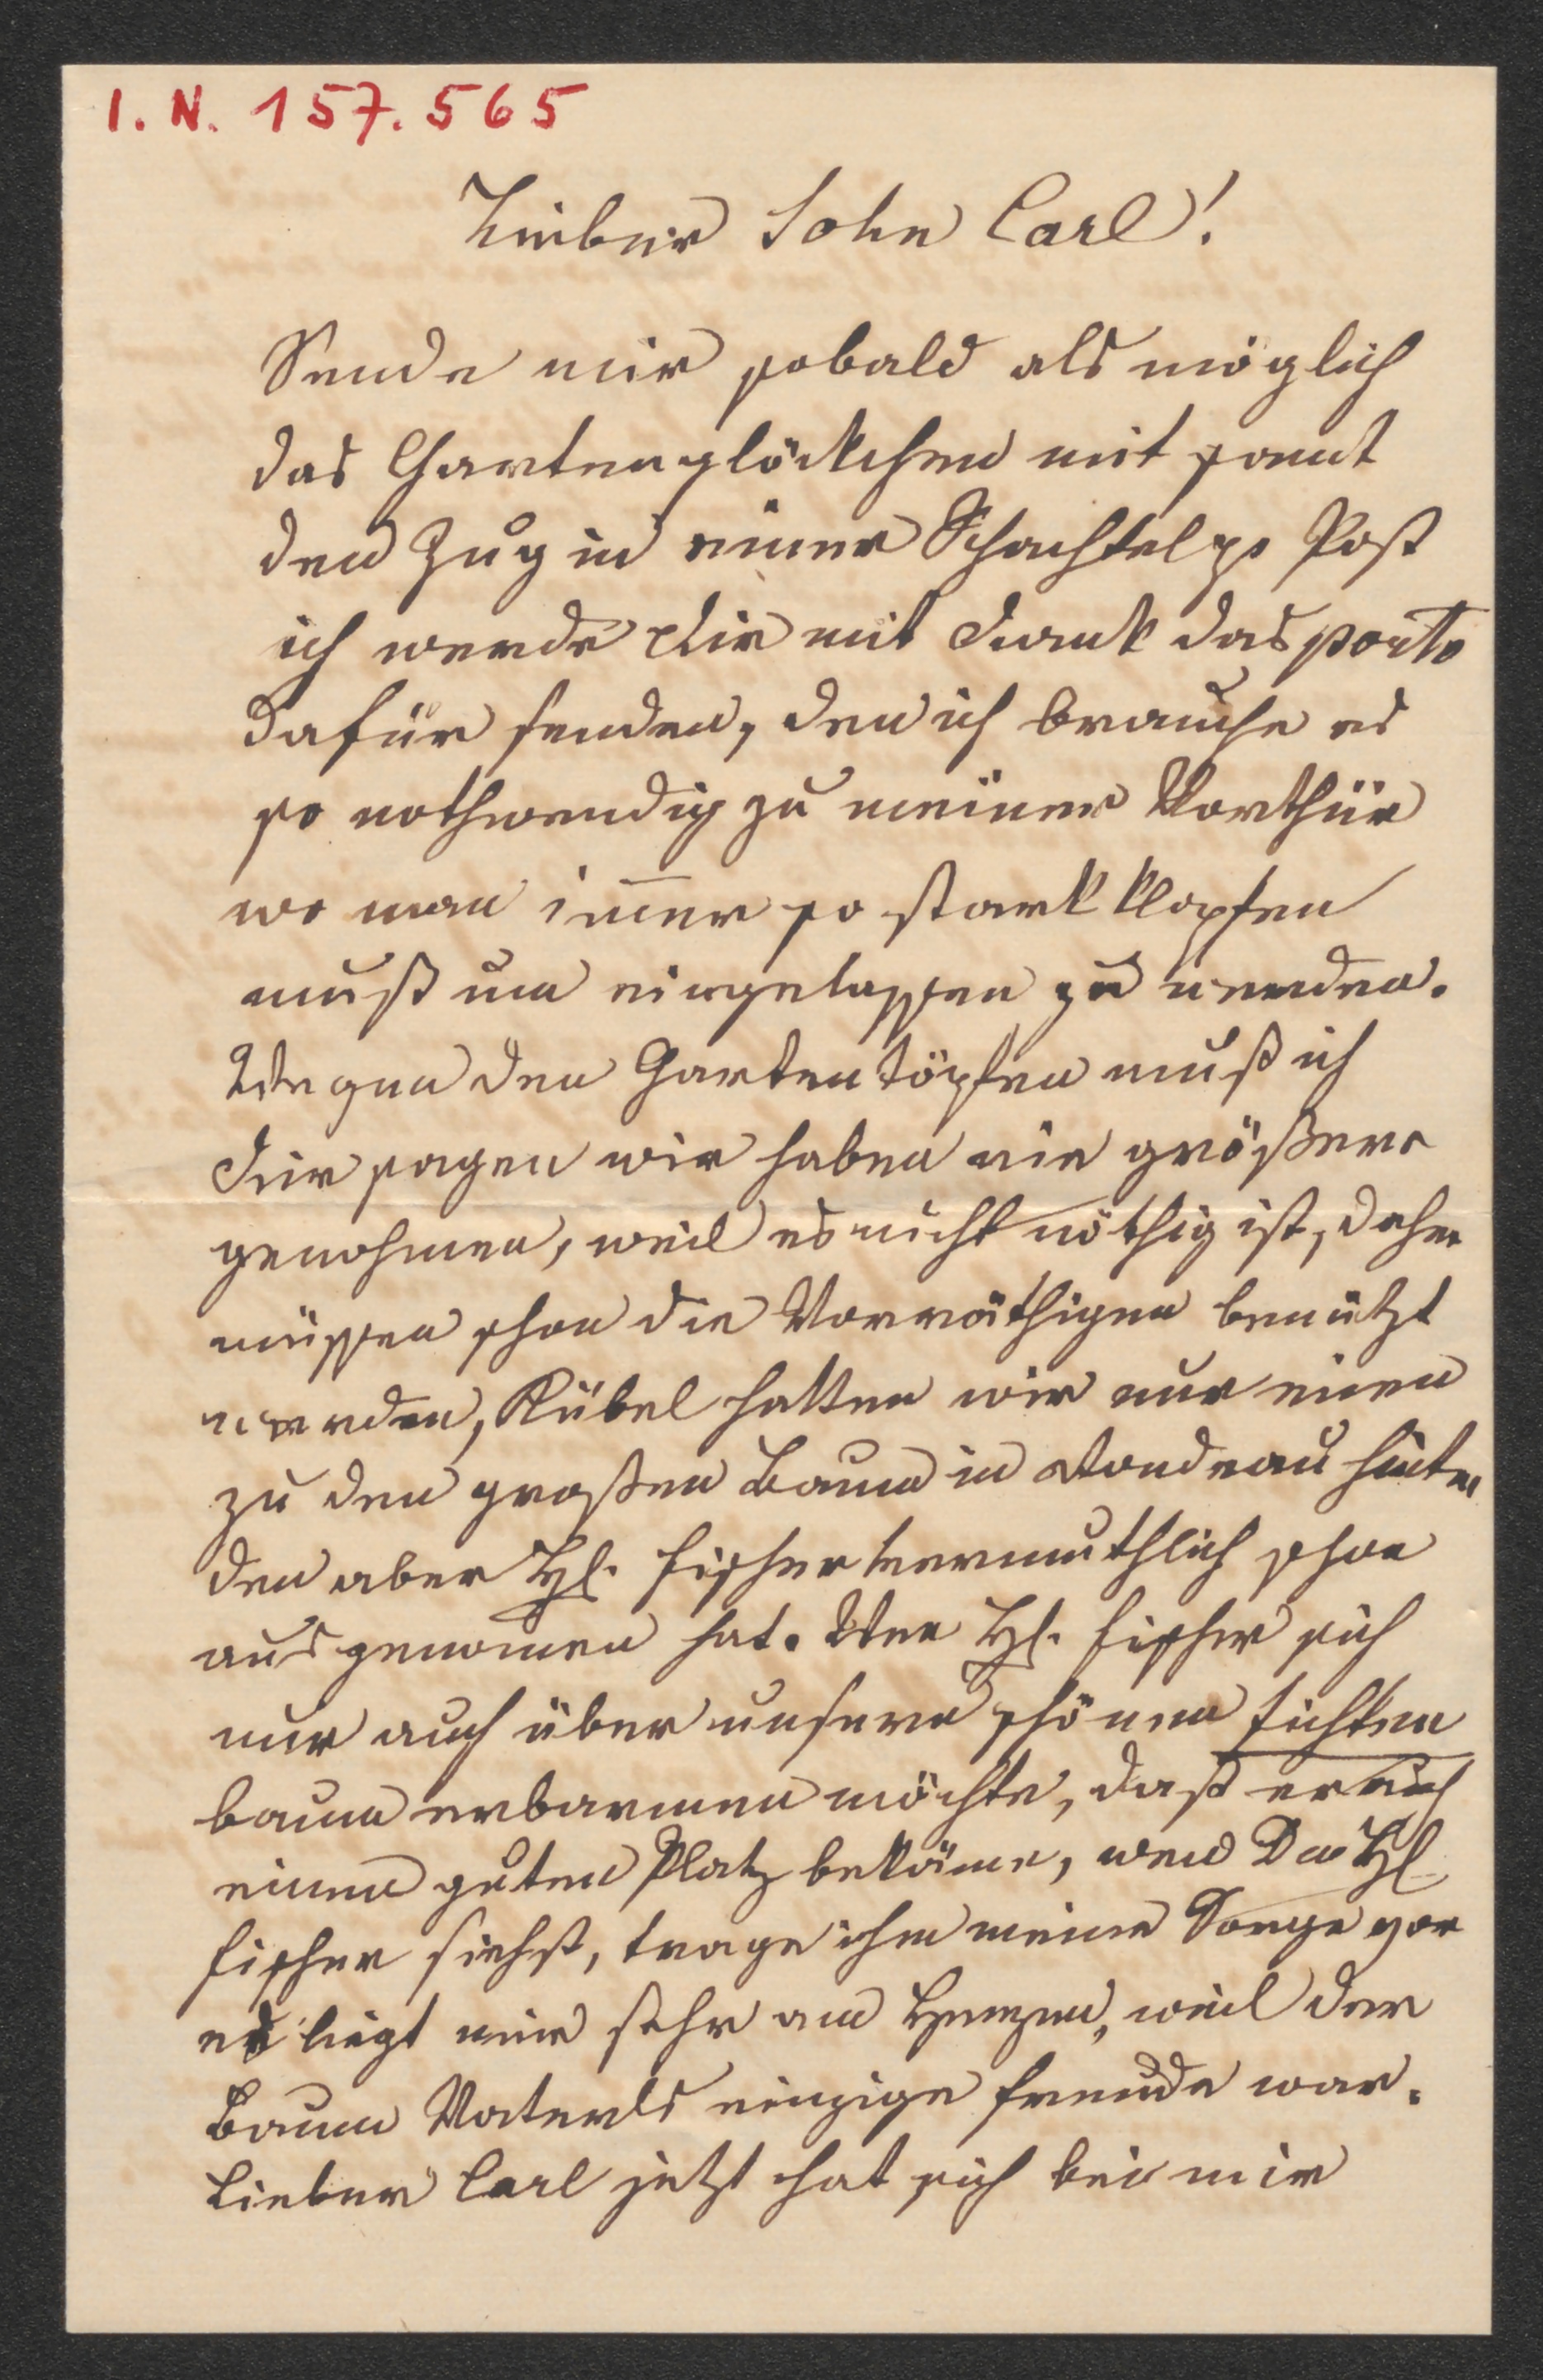 I. N. 157.565
Lieber Sohn Carl!
Sende mir sobald als möglich
das Gartenglöckchen mit samt
den Zug in einer Schachtel pr Post
ich werde Dir mit Dank das porto
dafür senden, den ich brauche es
so nothwendig zu meiner Vorthür
wo man im̅er so stark klopfen
muß um eingelassen zu werden.
Wegen den Gartentöpfen muß ich
Dir sagen wir haben nie größere
genohmen, weil es nicht nöthig ist, daher
müssen schon die Vorräthigen benützt
werden, Kübel hatten wir nur einen
zu den großen Baum in Rondeau hinten
den aber H. Fischer vermuthlich schon
ausgenomen hat. Wen H. Fischer sich
nur auch über unsern schönen Fichten
baum erbarmen möchte, daß er auch
einen guten Platz bekäme, wen Du H.
Fischer siehst, trage ihm meine Sorge vor
es liegt mir sehr am Herzen, weil der
Baum Vaterls einzige Freude war.
Lieber Carl jetzt hat sich bei mir